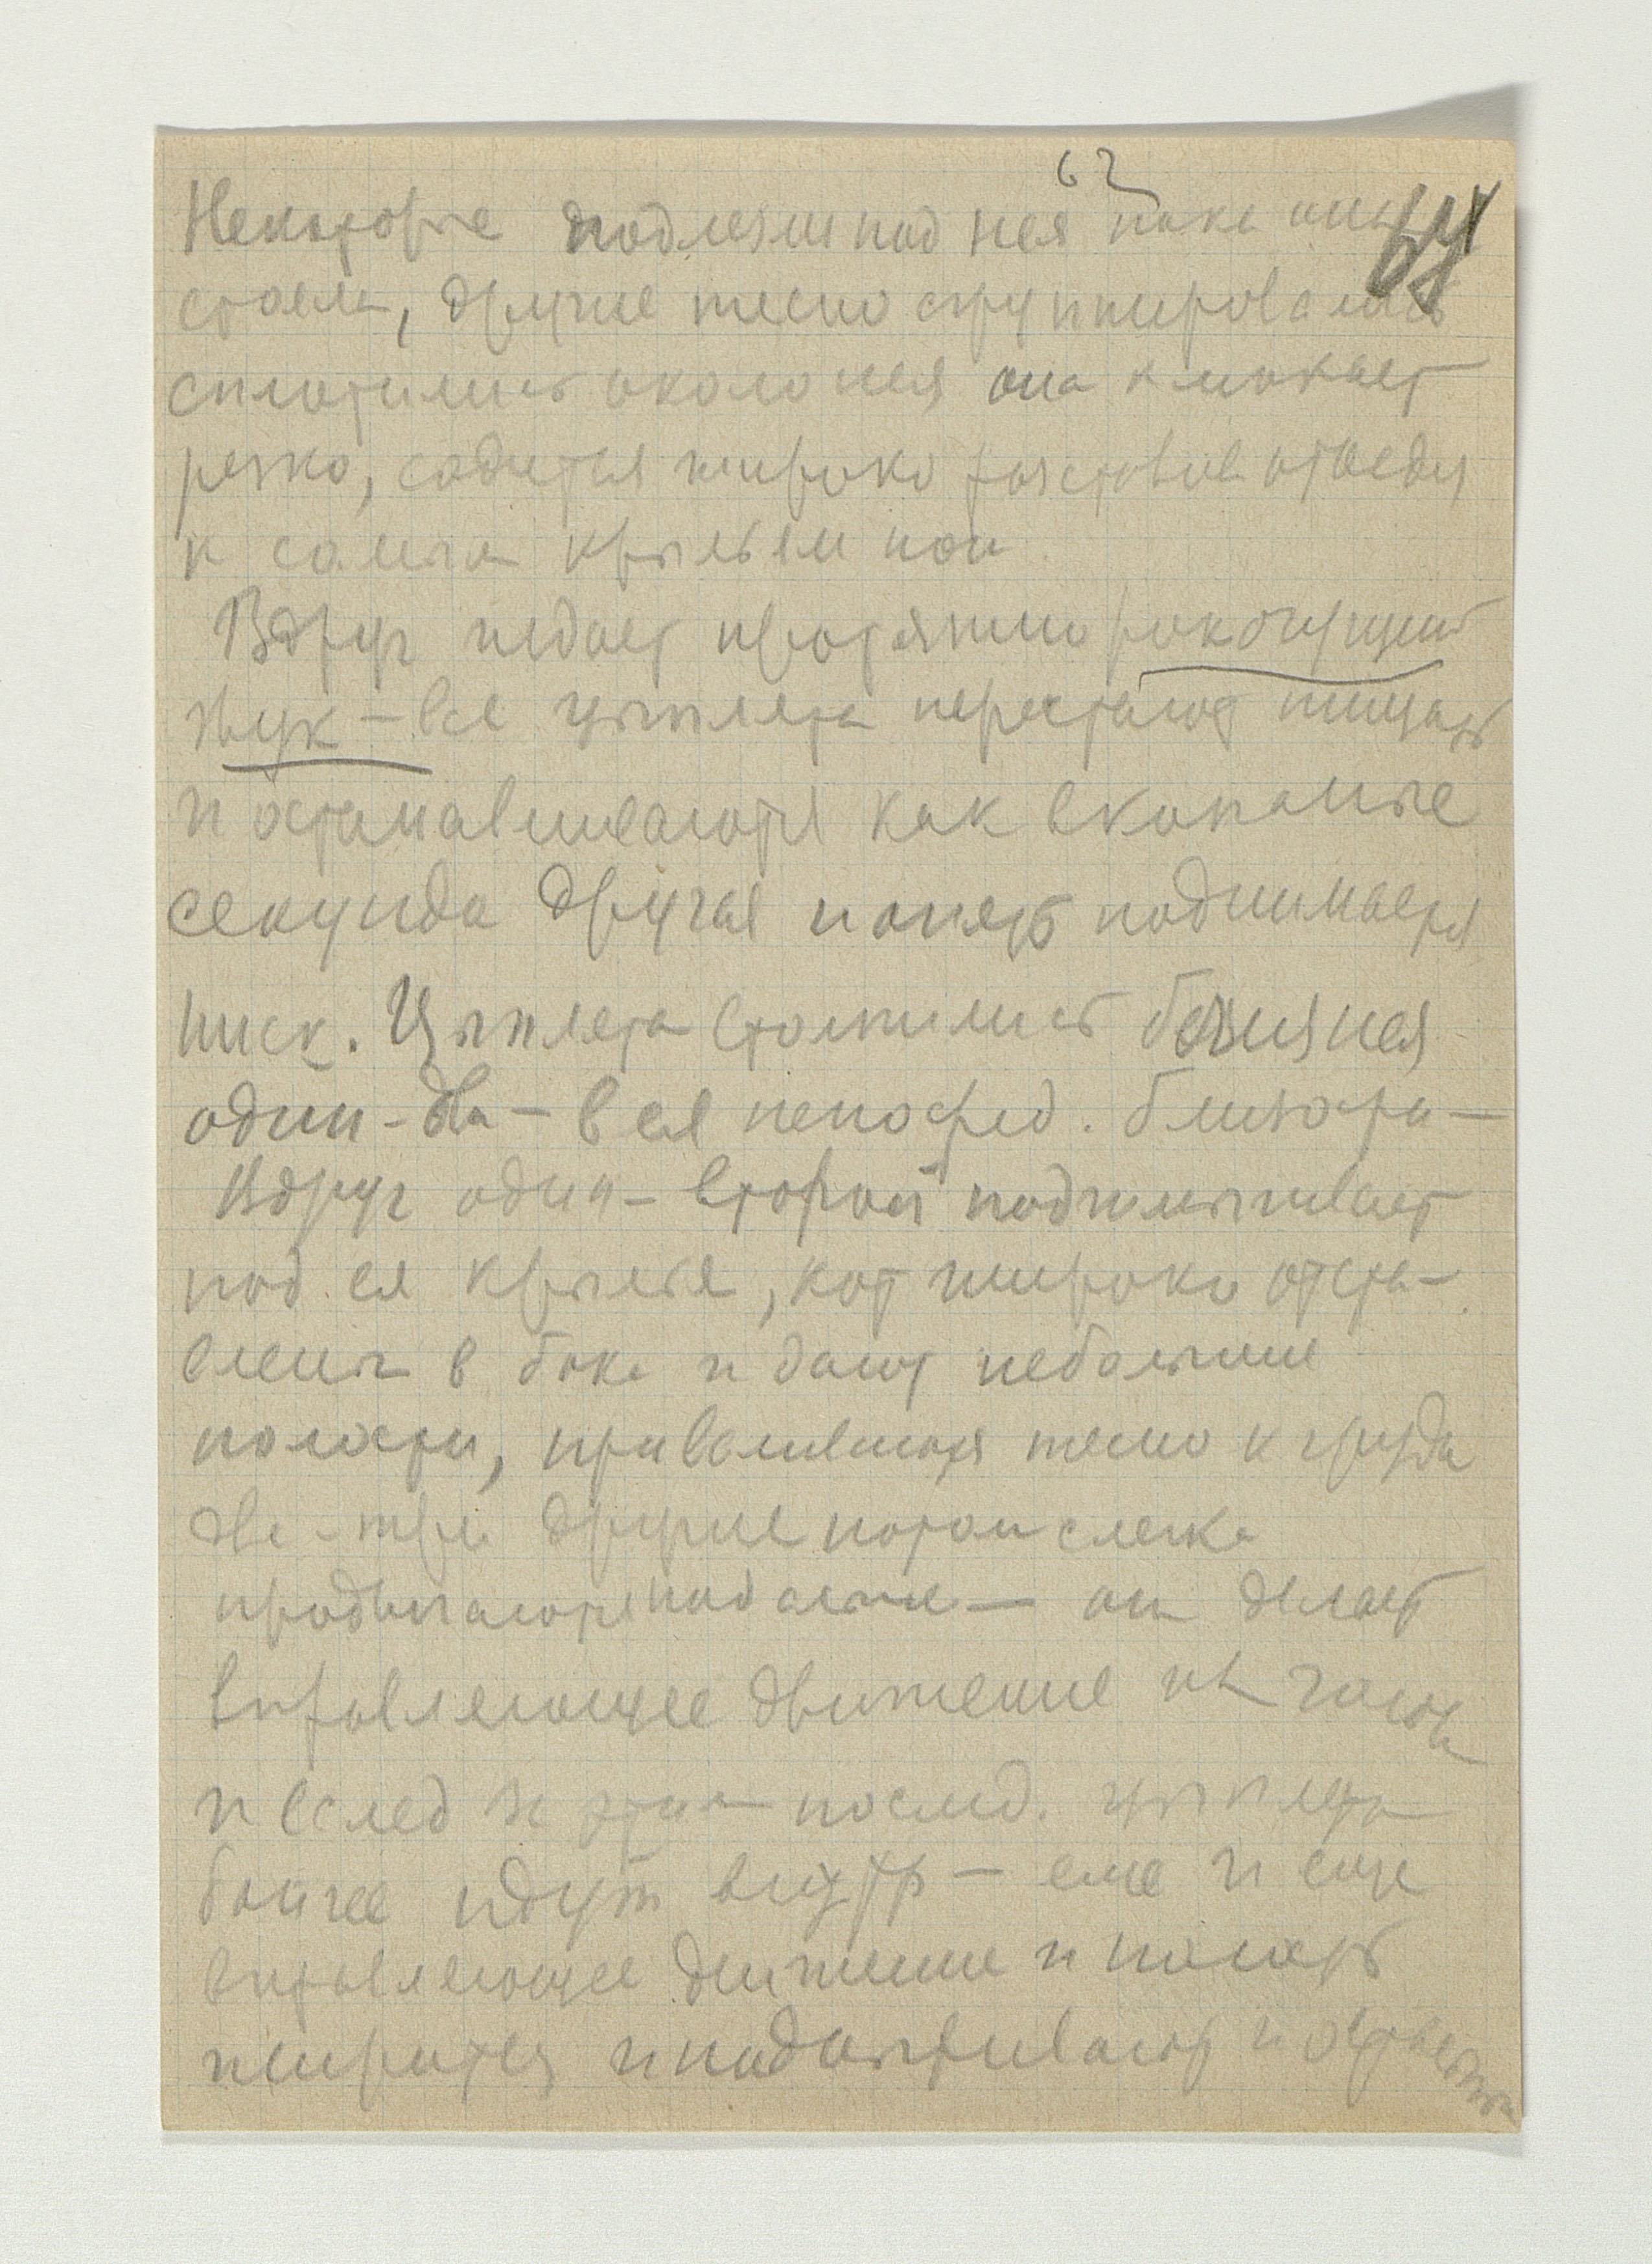 62
64
Некоторые подлезли под нея пока она
стоела, другие тесно сгруппировались
сплотились около нея она клокчет
резко, садится широко расставив отведя
к самым крыльям ноги
Вдруг издает протяжно рокочущий
звук – все цыплята перестают пищать
и останавливаются как вкопаные
секунда другая и опять поднимается
писк. Цыплята столпились близ нея
один-два – в ея непосред. близости –
Вдруг один – второй подныривает
под ея крылья, кот широко отста-
влены в бока и дают небольшие
полости, привалившися тесно к груди
два-три другие потом слегка
продвигаются под
вправляющее движение
и вслед за этим послед. цыплята
более идут внутрь – еще и еще
вправляющее движение и полость
ширится и